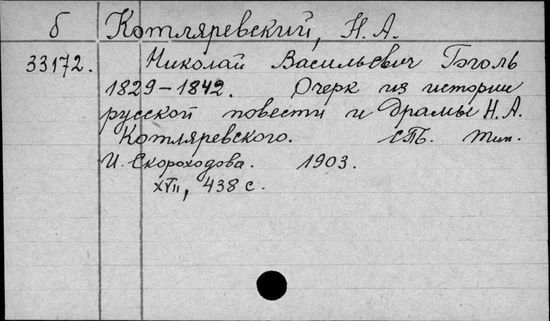 б Котляревский, Н. А.
33172. Николай Васильевич Гоголь
1829-1842. Очерк из истории
русской повести и драмы Н. А.
Котляревского. СПБ. тип.
И. Скороходова. 1903.
XVII, 438 с.